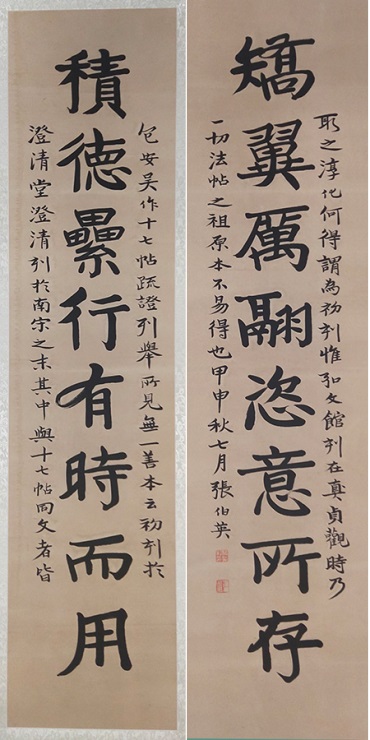 積德纍行有時而用
包安吴作十七帖疏證列舉所見無一善本云初刊於
澄清堂澄清刊於南宋之末其中與十七帖同文者皆
矯翼厲翮恣意所存
取之淳化何得謂為初刊惟弘文館刊在真貞觀時乃
一切法帖之祖原本不易得也甲申秋七月張伯英